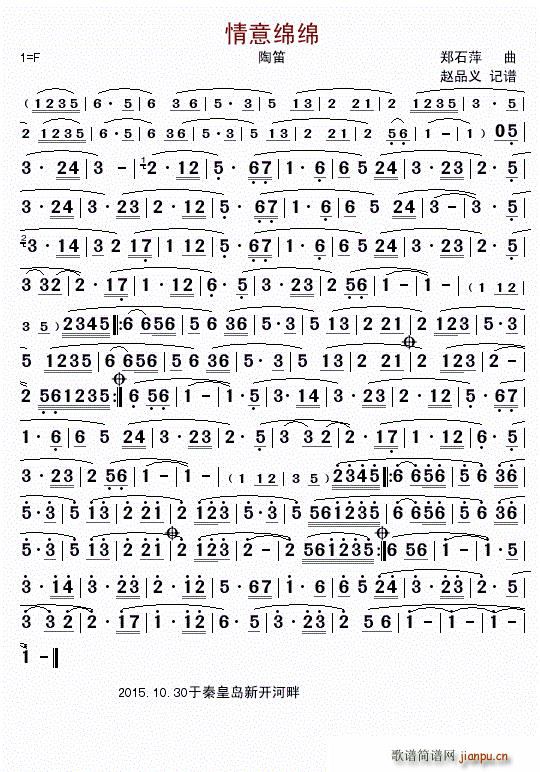 情意绵绵
1=F 陶笛 郑石萍 曲
赵品义 记谱
(1235|6·5|6 36|5·35|13|2 21|2 1235|3·5|
2 1235|6·5|6 36|5·35|13|2 21|2 56|1-|1-) 05|
3·24|3-|2·12|5·67|1·6|6 5 24|3·23|2·5|
3·24|3·23|2·12|5·67|1·6|6 5 24|3-|3·5|
3·14|3 2 17|1 12|3·23|5·67|1·6|6 5 24|3·23|2·5|
3 32|2·17|1·12|6·5|3·23|2 56|1-|1-|(1 12|
3 5)2345|:6 656|5 6 36|5·3|5 13|2 21|2 123|5·3|
5 1235|6 656|5 6 36|5·3|5 13|2 21|2 123|2-|
2 561235:|6 56|1-|1·5|3·14|3·23|2·12|5·67|
1·6|6 5 24|3·23|2·5|3 32|2·17|1·12|6·5|
3·23|2 56|1-|1-|(1 12|3 5)2345|:6 656|5 6 36|
5·3|5 13|2 21|2 123|5·3|5 561235|6 656|5 6 36|
5·3|5 13|2 21|2 123|2-|2 561235:|6 56|1-|1·5|
3·14|3·23|2·12|5·67|1·6|6 5 24|3·23|2·5|
3 32|2·17|1·12|6·5|3·23|2 56|1-|1-|1-|
1-‖
2015.10.30于秦皇岛新开河畔
歌谱简谱网
jianpu.cn